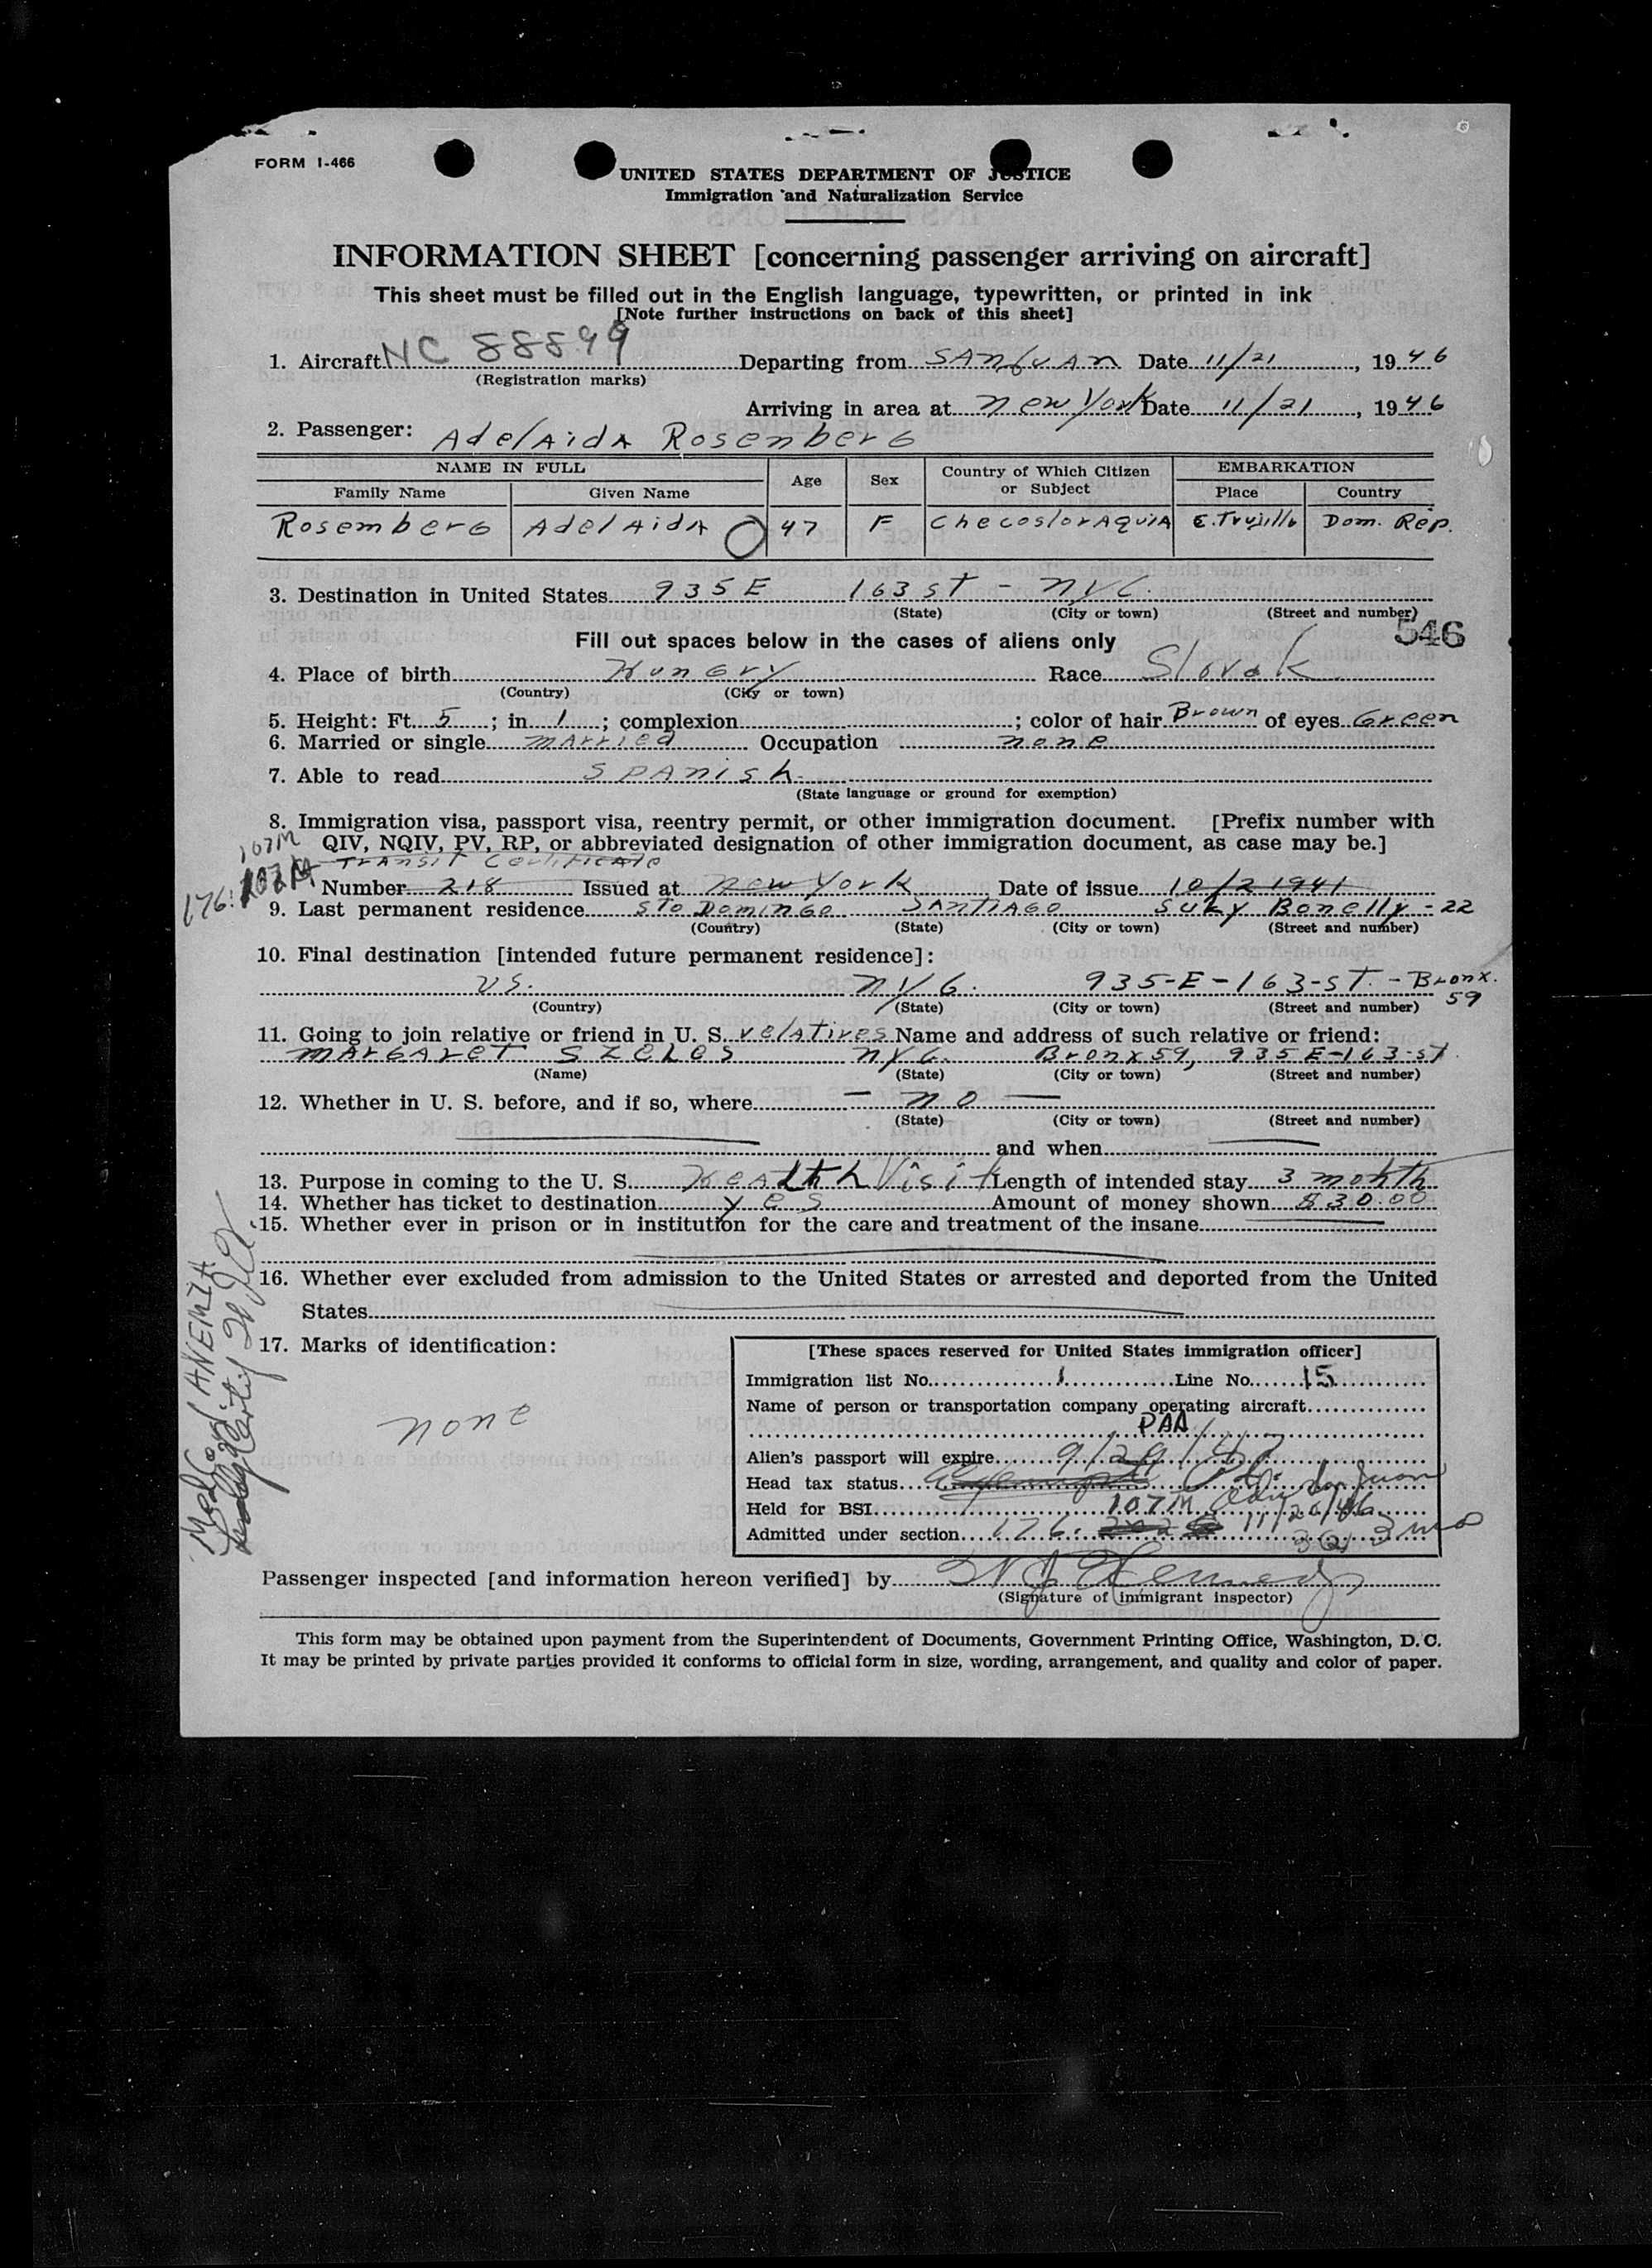 FORM I-466
UNITED STATES DEPARTMENT OF JUSTICE
Immigration and Naturalization Service
INFORMATION SHEET [concerning passenger arriving on aircraft]
This sheet must be filled out in the English language, typewritten, or printed in ink
[Note further instructions on back of this sheet]
1. Aircraft NC 88899 Departing from SANJUAN Date 11/21, 1946
(Registration marks)
Arriving in area at New York Date 11/21, 1946
2. Passenger: AdelAidA RosenberG
NAME IN FULL Age Sex Country of Which Citizen or Subject EMBARKATION
Family Name Given Name Place Country
RosemberG AdelAidA 47 F ChecoslovAquiA C. Trujillo Dom. Rep.
3. Destination in United States 935 E 163 st - NYC.
(State) (City or town) (Street and number)
546
Fill out spaces below in the cases of aliens only
4. Place of birth HunGry Race Slovak
(Country) (City or town)
5. Height: Ft. 5; in. 1; complexion; color of hair Brown of eyes Green
6. Married or single married Occupation none
7. Able to read SPAnish
(State language or ground for exemption)
8. Immigration visa, passport visa, reentry permit, or other immigration document. [Prefix number with
107M QIV, NQIV, PV, RP, or abbreviated designation of other immigration document, as case may be.]
TRANSIT Certificate
176:
Number 218 Issued at New York Date of issue 10/2 1941
9. Last permanent residence STo DominGo SANTIAGO Suky Bonelly - 22
(Country) (State) (City or town) (Street and number)
10. Final destination [intended future permanent residence]:
US. NYC. 935-E-163-ST. - Bronx. 59
(Country) (State) (City or town) (Street and number)
11. Going to join relative or friend in U. S. relAtives Name and address of such relative or friend:
MARGARET SZELES NYC. Bronx 59, 935 E-163-st.
(Name) (State) (City or town) (Street and number)
12. Whether in U. S. before, and if so, where — no —
(State) (City or town) (Street and number)
and when
13. Purpose in coming to the U. S. Health Visit Length of intended stay 3 month
14. Whether has ticket to destination yes Amount of money shown $30.00
15. Whether ever in prison or in institution for the care and treatment of the insane
16. Whether ever excluded from admission to the United States or arrested and deported from the United
States
17. Marks of identification:
none
Med. Cert. ANEMIA
[These spaces reserved for United States immigration officer]
Immigration list No. 1 Line No. 15
Name of person or transportation company operating aircraft
PAA
Alien's passport will expire 9/29/47
Head tax status
Held for BSI 107M 11/26/46
Admitted under section 176. 3(2) 3 mo
Passenger inspected [and information hereon verified] by Kennedy
(Signature of immigrant inspector)
This form may be obtained upon payment from the Superintendent of Documents, Government Printing Office, Washington, D. C.
It may be printed by private parties provided it conforms to official form in size, wording, arrangement, and quality and color of paper.